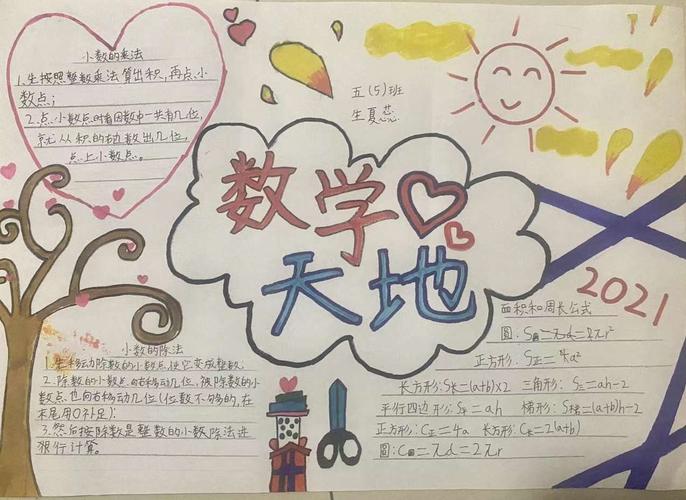 小数的乘法
1.先按照整数乘法算出积,再点小
数点;
2.点小数点时看因数中一共有几位,
就从积的右边数出几位,
点上小数点。
五(5)班
生夏蕊
数学
天地
2021
小数的除法
1.先移动除数的小数点,使它变成整数;
2.除数的小数点向右移动几位,被除数的小
数点也向右移动几位(位数不够的,在
末尾用0补足);
3.然后按除数是整数的小数除法进
行计算。
面积和周长公式
圆:S圆=πd=2πr²
正方形:S正=4a²
长方形:S长=(a+b)×2 三角形:S三=ah÷2
平行四边形:S平=ah 梯形:S梯=(a+b)h÷2
正方形:C正=4a 长方形:C长=2(a+b)
圆:C圆=πd=2πr